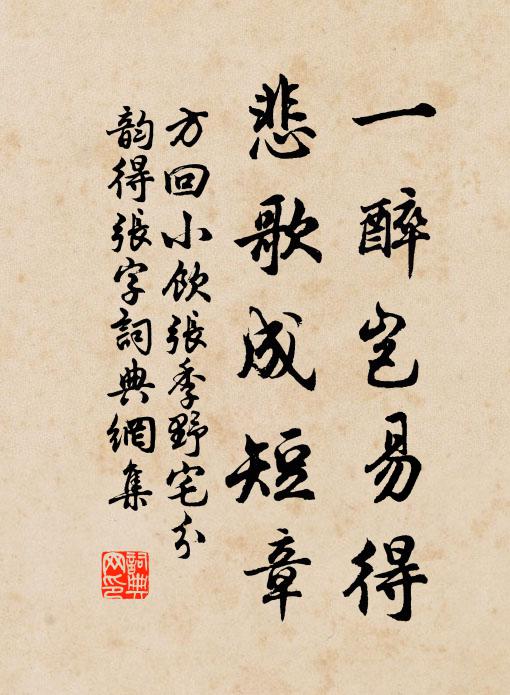 一醉岂易得
悲歌成短章
方回小飲張季野宅分
韵得張字詞典網集
詞典网印